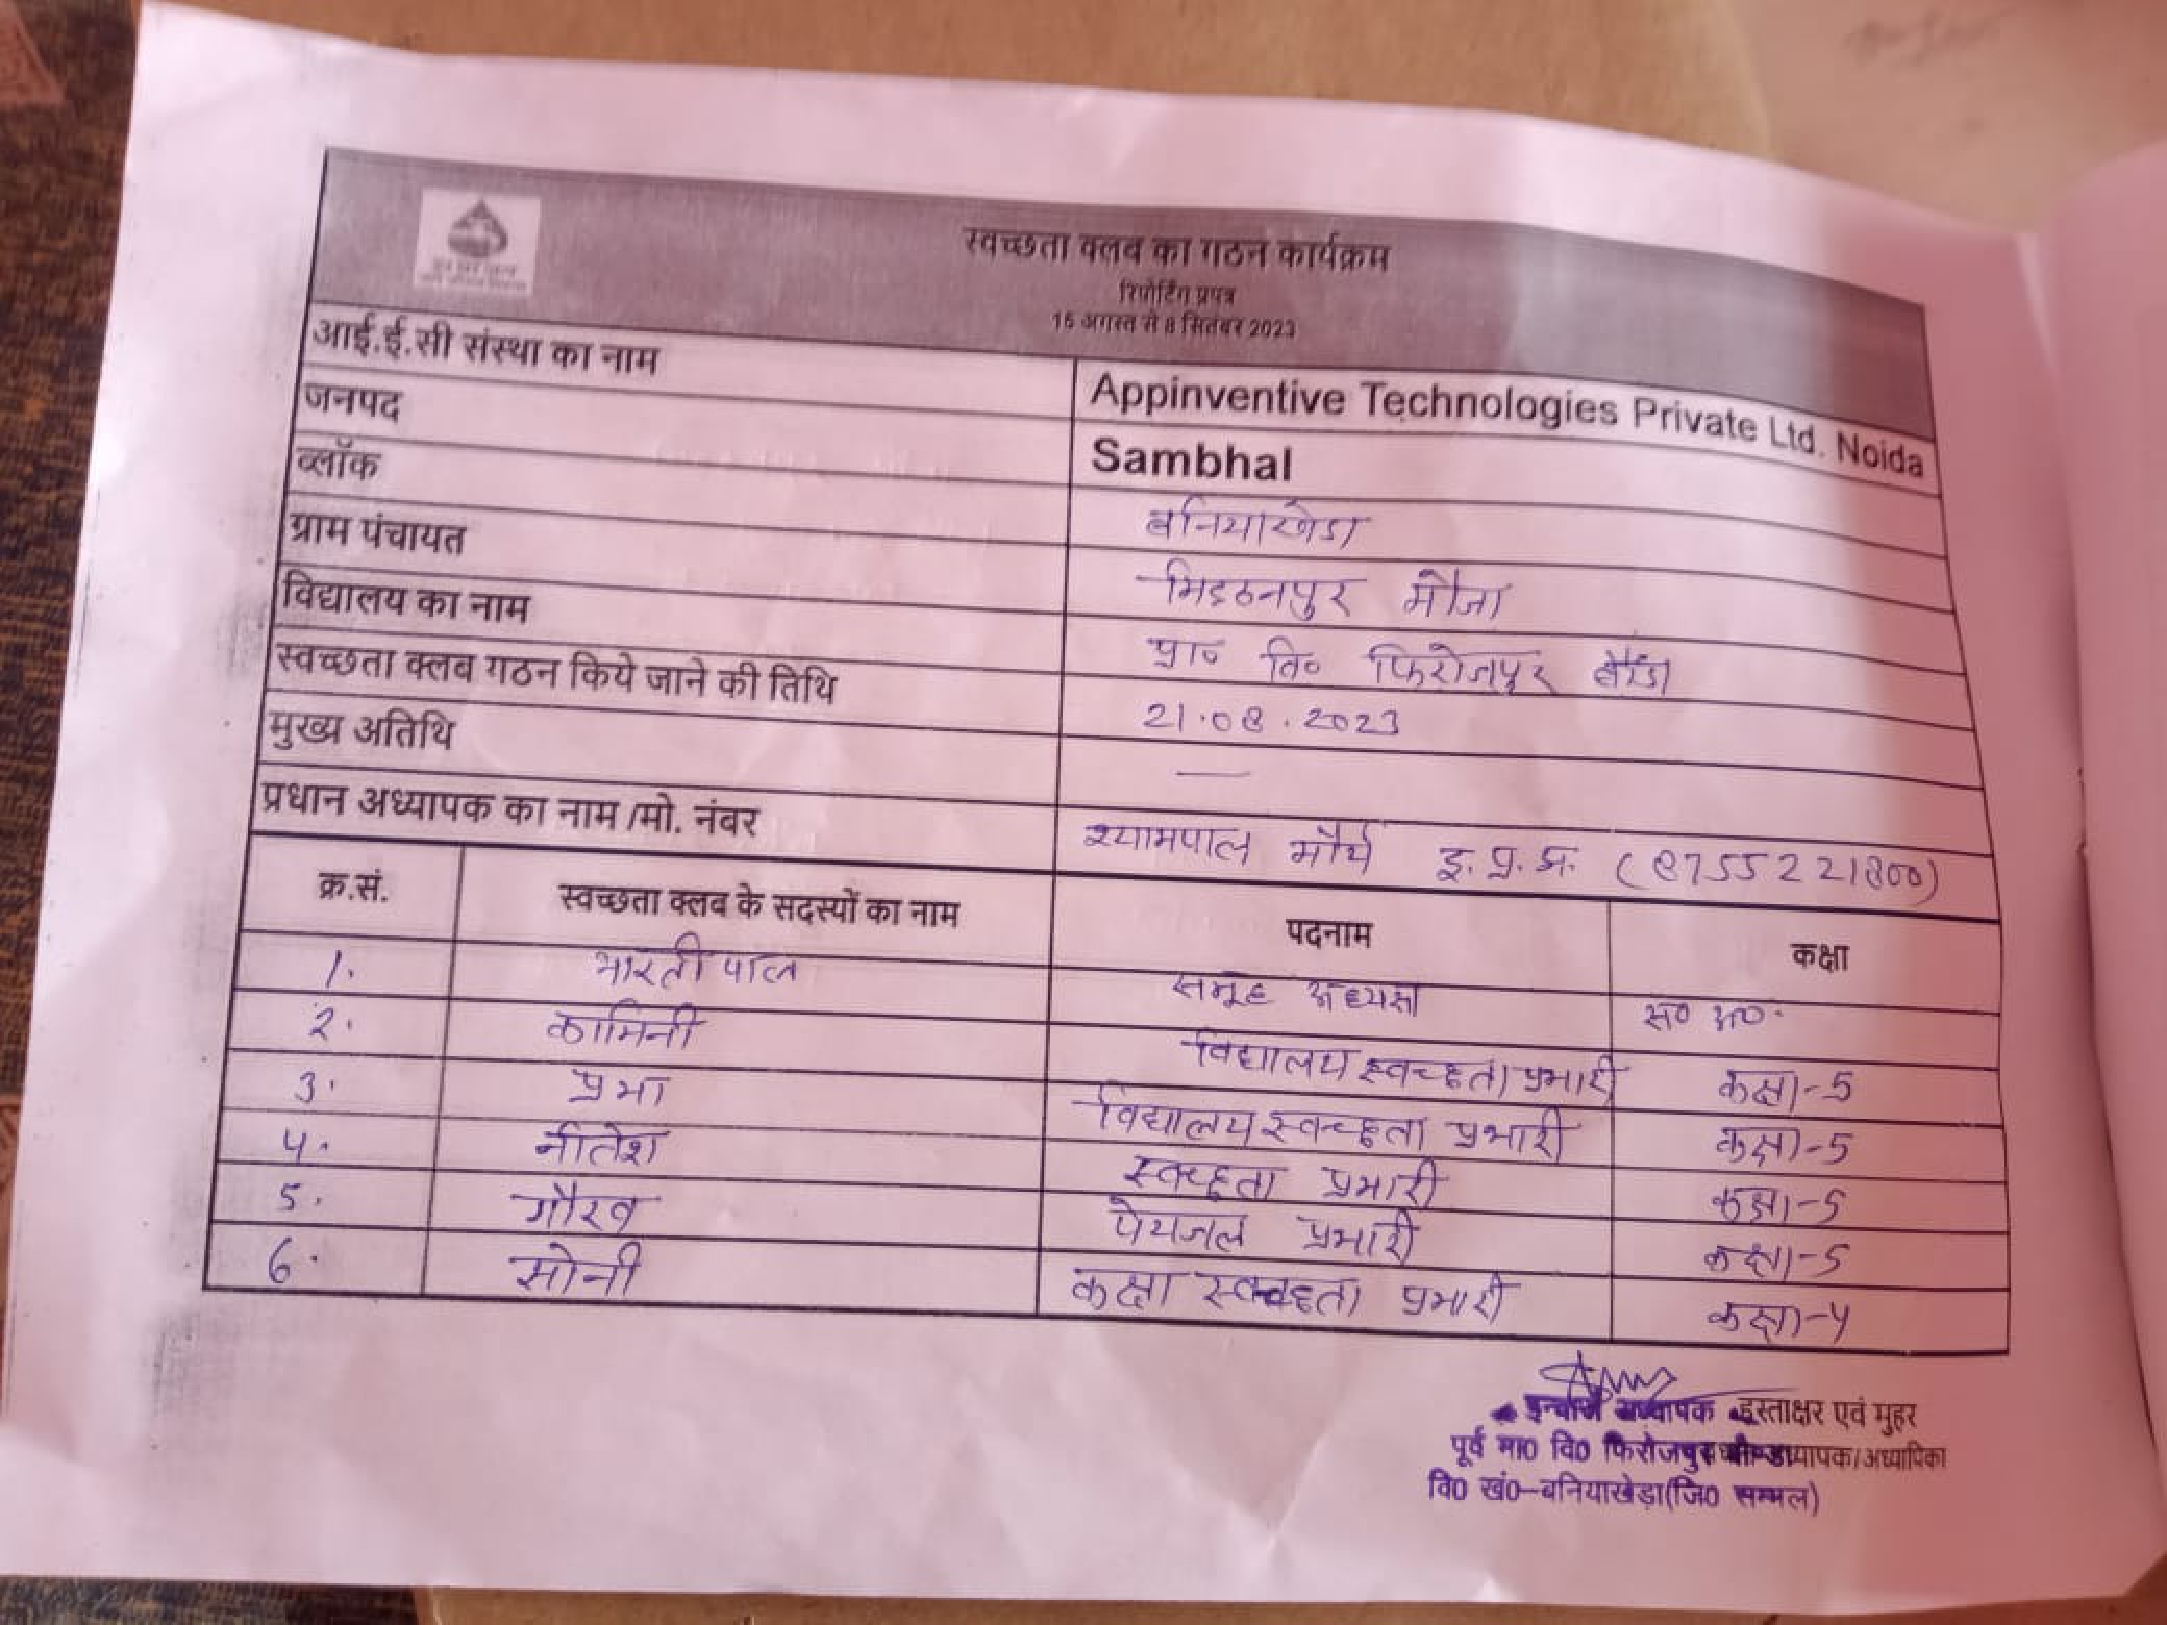 स्वच्छता क्लब का गठन कार्यक्रम
रिपोर्टिंग प्रपत्र
15 अगस्त से 8 सितंबर 2023
आई.ई.सी संस्था का नाम Appinventive Technologies Private Ltd. Noida
जनपद Sambhal
ब्लॉक बनियाखेडा
ग्राम पंचायत मिठनपुर मौजा
विद्यालय का नाम प्रा० वि० फिरोजपुर
स्वच्छता क्लब गठन किये जाने की तिथि 21.08.2023
मुख्य अतिथि —
प्रधान अध्यापक का नाम /मो. नंबर श्यामपाल मौर्य इ.प्र.अ. (8755221800)
क्र.सं. स्वच्छता क्लब के सदस्यों का नाम पदनाम कक्षा
1. भारती पाल समूह अध्यक्ष स० अ०.
2. कामिनी विद्यालय स्वच्छता प्रभारी कक्षा-5
3. प्रभा विद्यालय स्वच्छता प्रभारी कक्षा-5
4. नीतेश स्वच्छता प्रभारी कक्षा-5
5. गौरव पेयजल प्रभारी कक्षा-5
6. सोनी कक्षा स्वच्छता प्रभारी कक्षा-4
इन्चार्ज अध्यापक हस्ताक्षर एवं मुहर
पूर्व मा0 वि0 फिरोजपुर अध्यापिका
वि0 खं0-बनियाखेड़ा(जि0 सम्भल)